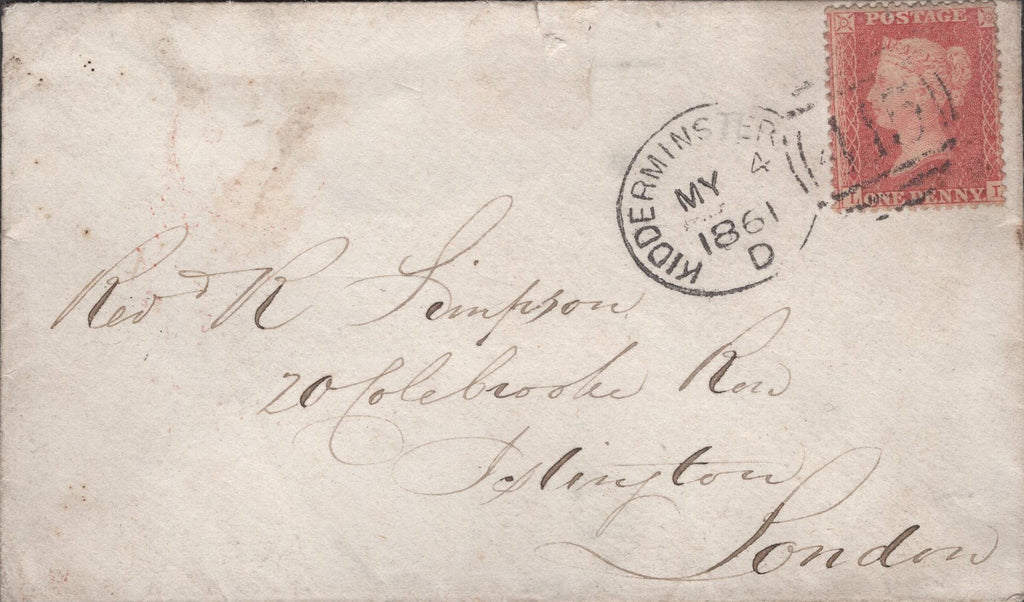 POSTAGE
L ONE PENNY L
KIDDERMINSTER
4
MY
1861
D
415
Revd R Simpson
20 Colebrooke Row
Islington
London